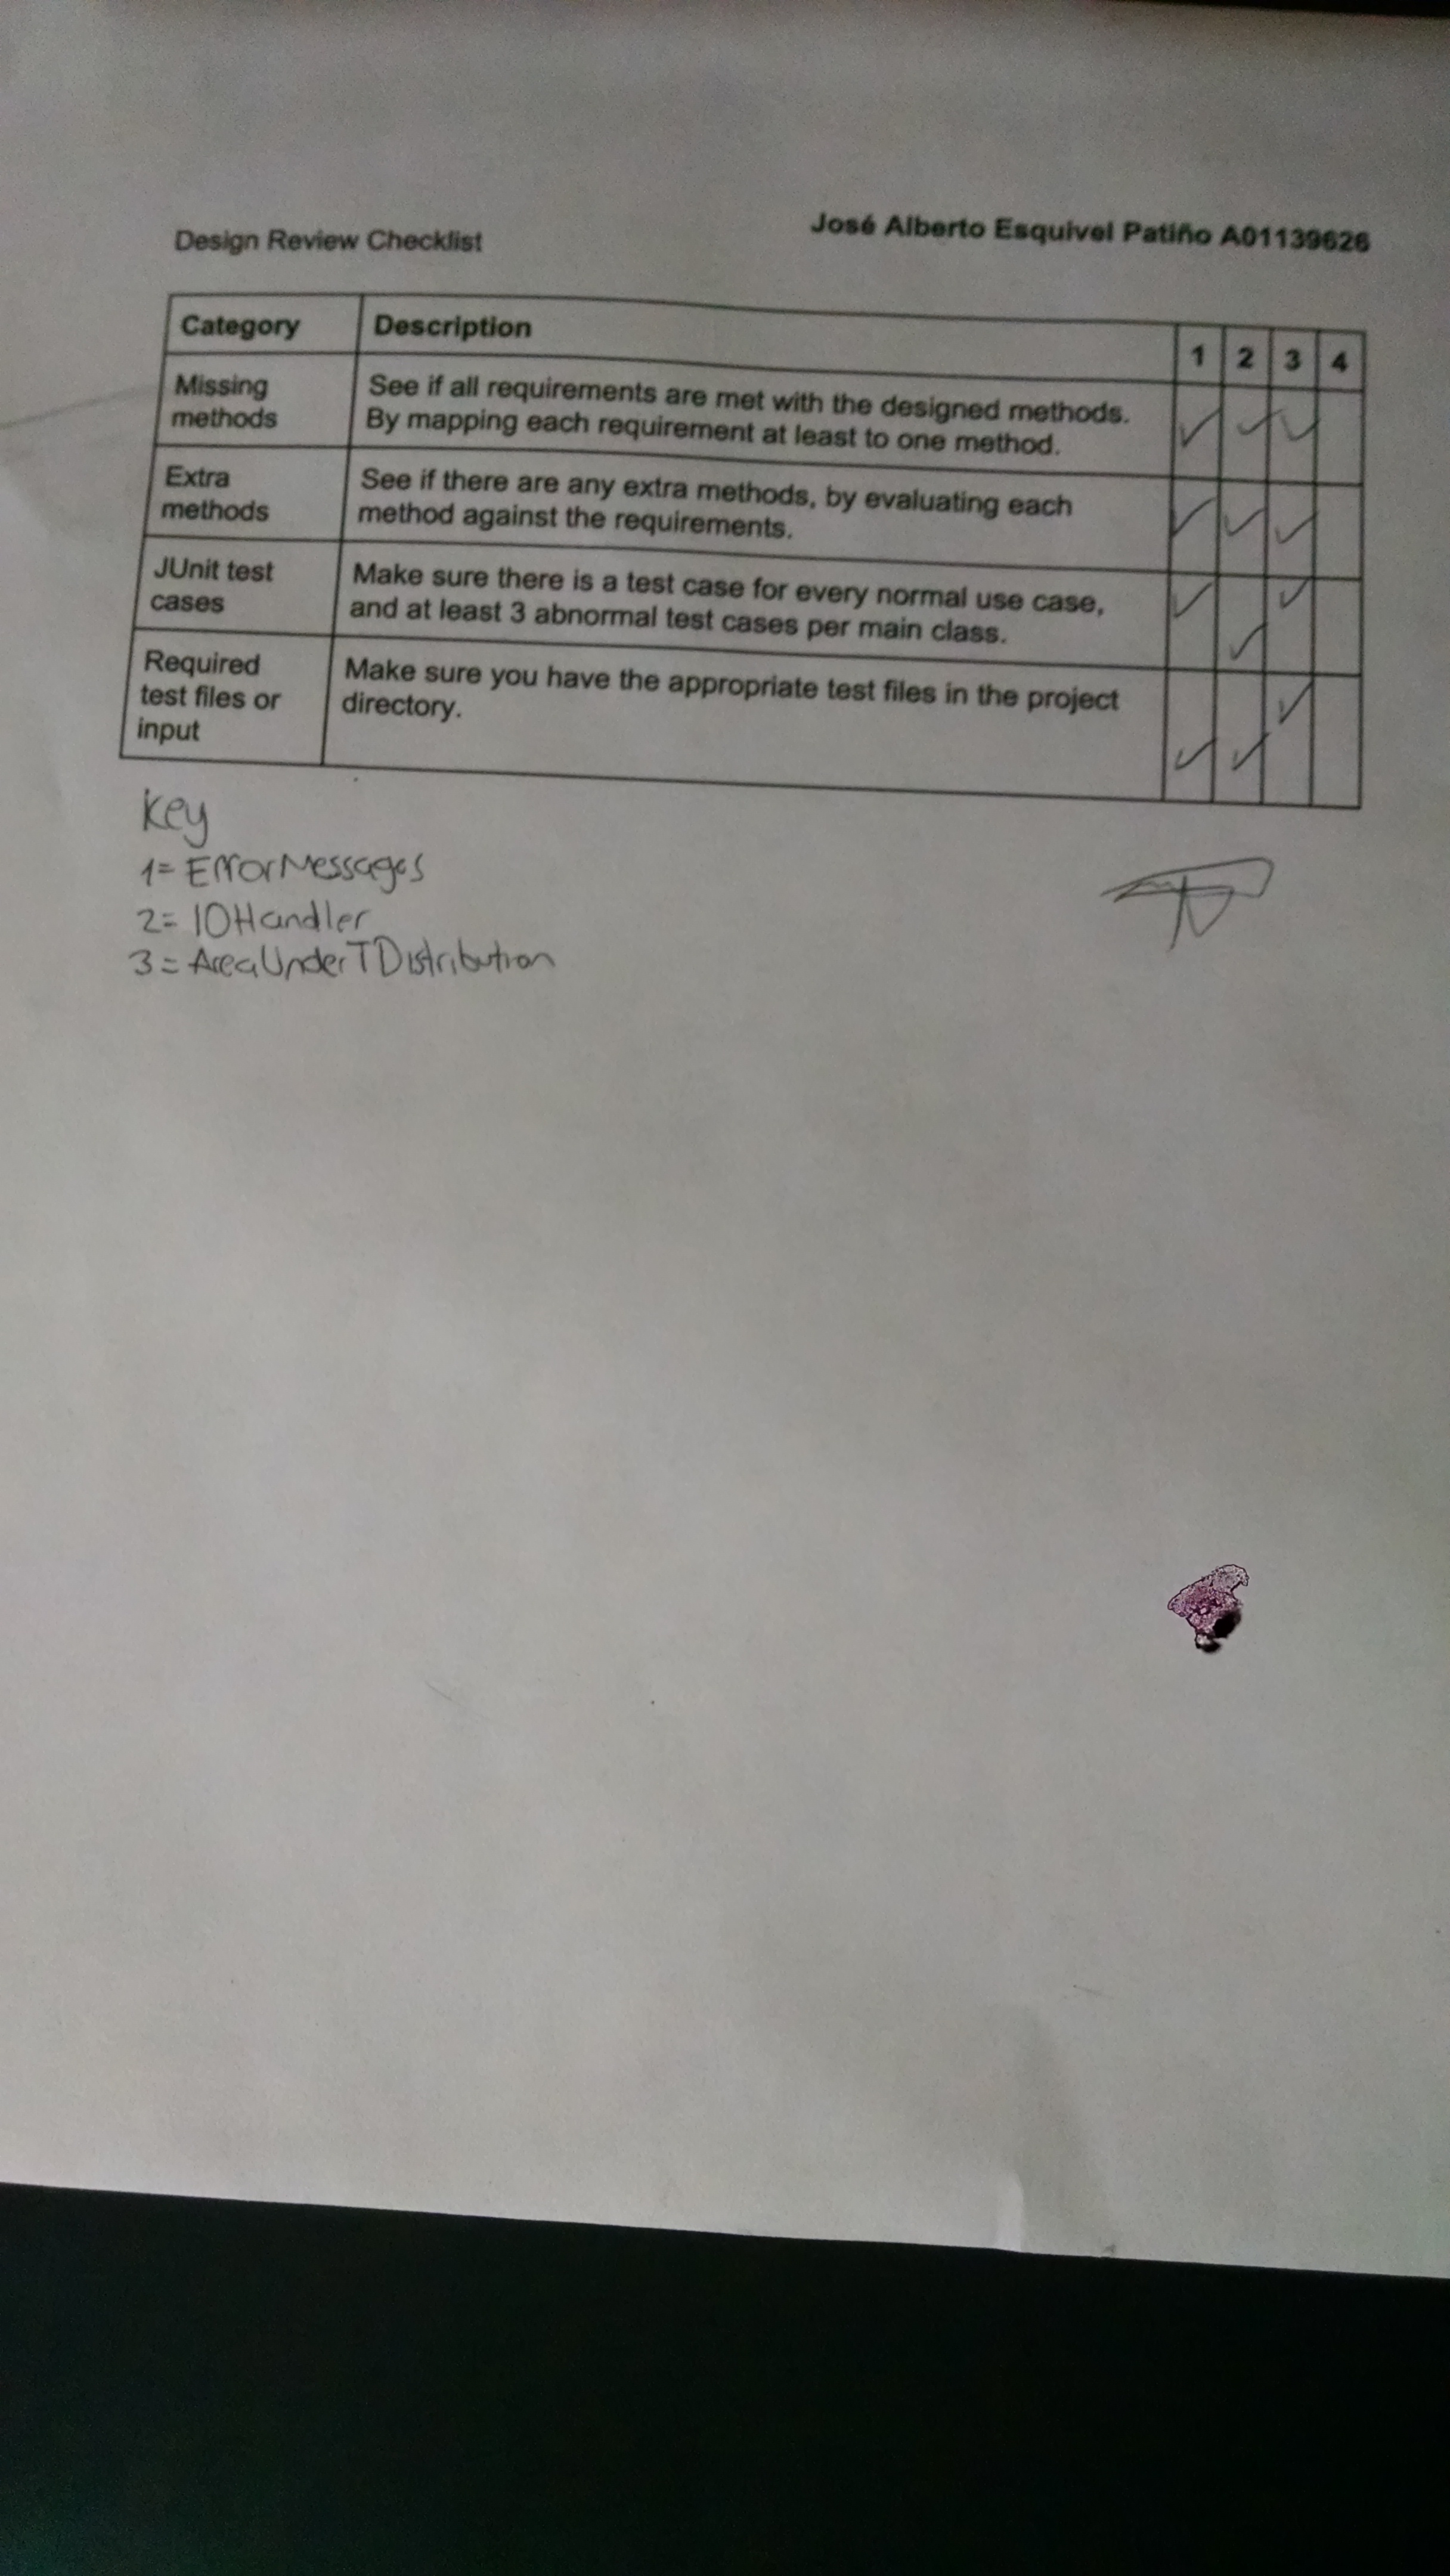 Design Review Checklist
José Alberto Esquivel Patiño A01139626
Category Description 1 2 3 4
Missing methods
See if all requirements are met with the designed methods.
By mapping each requirement at least to one method.
✓ ✓ ✓
Extra methods
See if there are any extra methods, by evaluating each
method against the requirements.
✓ ✓ ✓
JUnit test cases
Make sure there is a test case for every normal use case,
and at least 3 abnormal test cases per main class.
✓ ✓ ✓
Required test files or input
Make sure you have the appropriate test files in the project
directory.
✓ ✓ ✓
Key
1= ErrorMessages
2= IOHandler
3= AreaUnderTDistribution